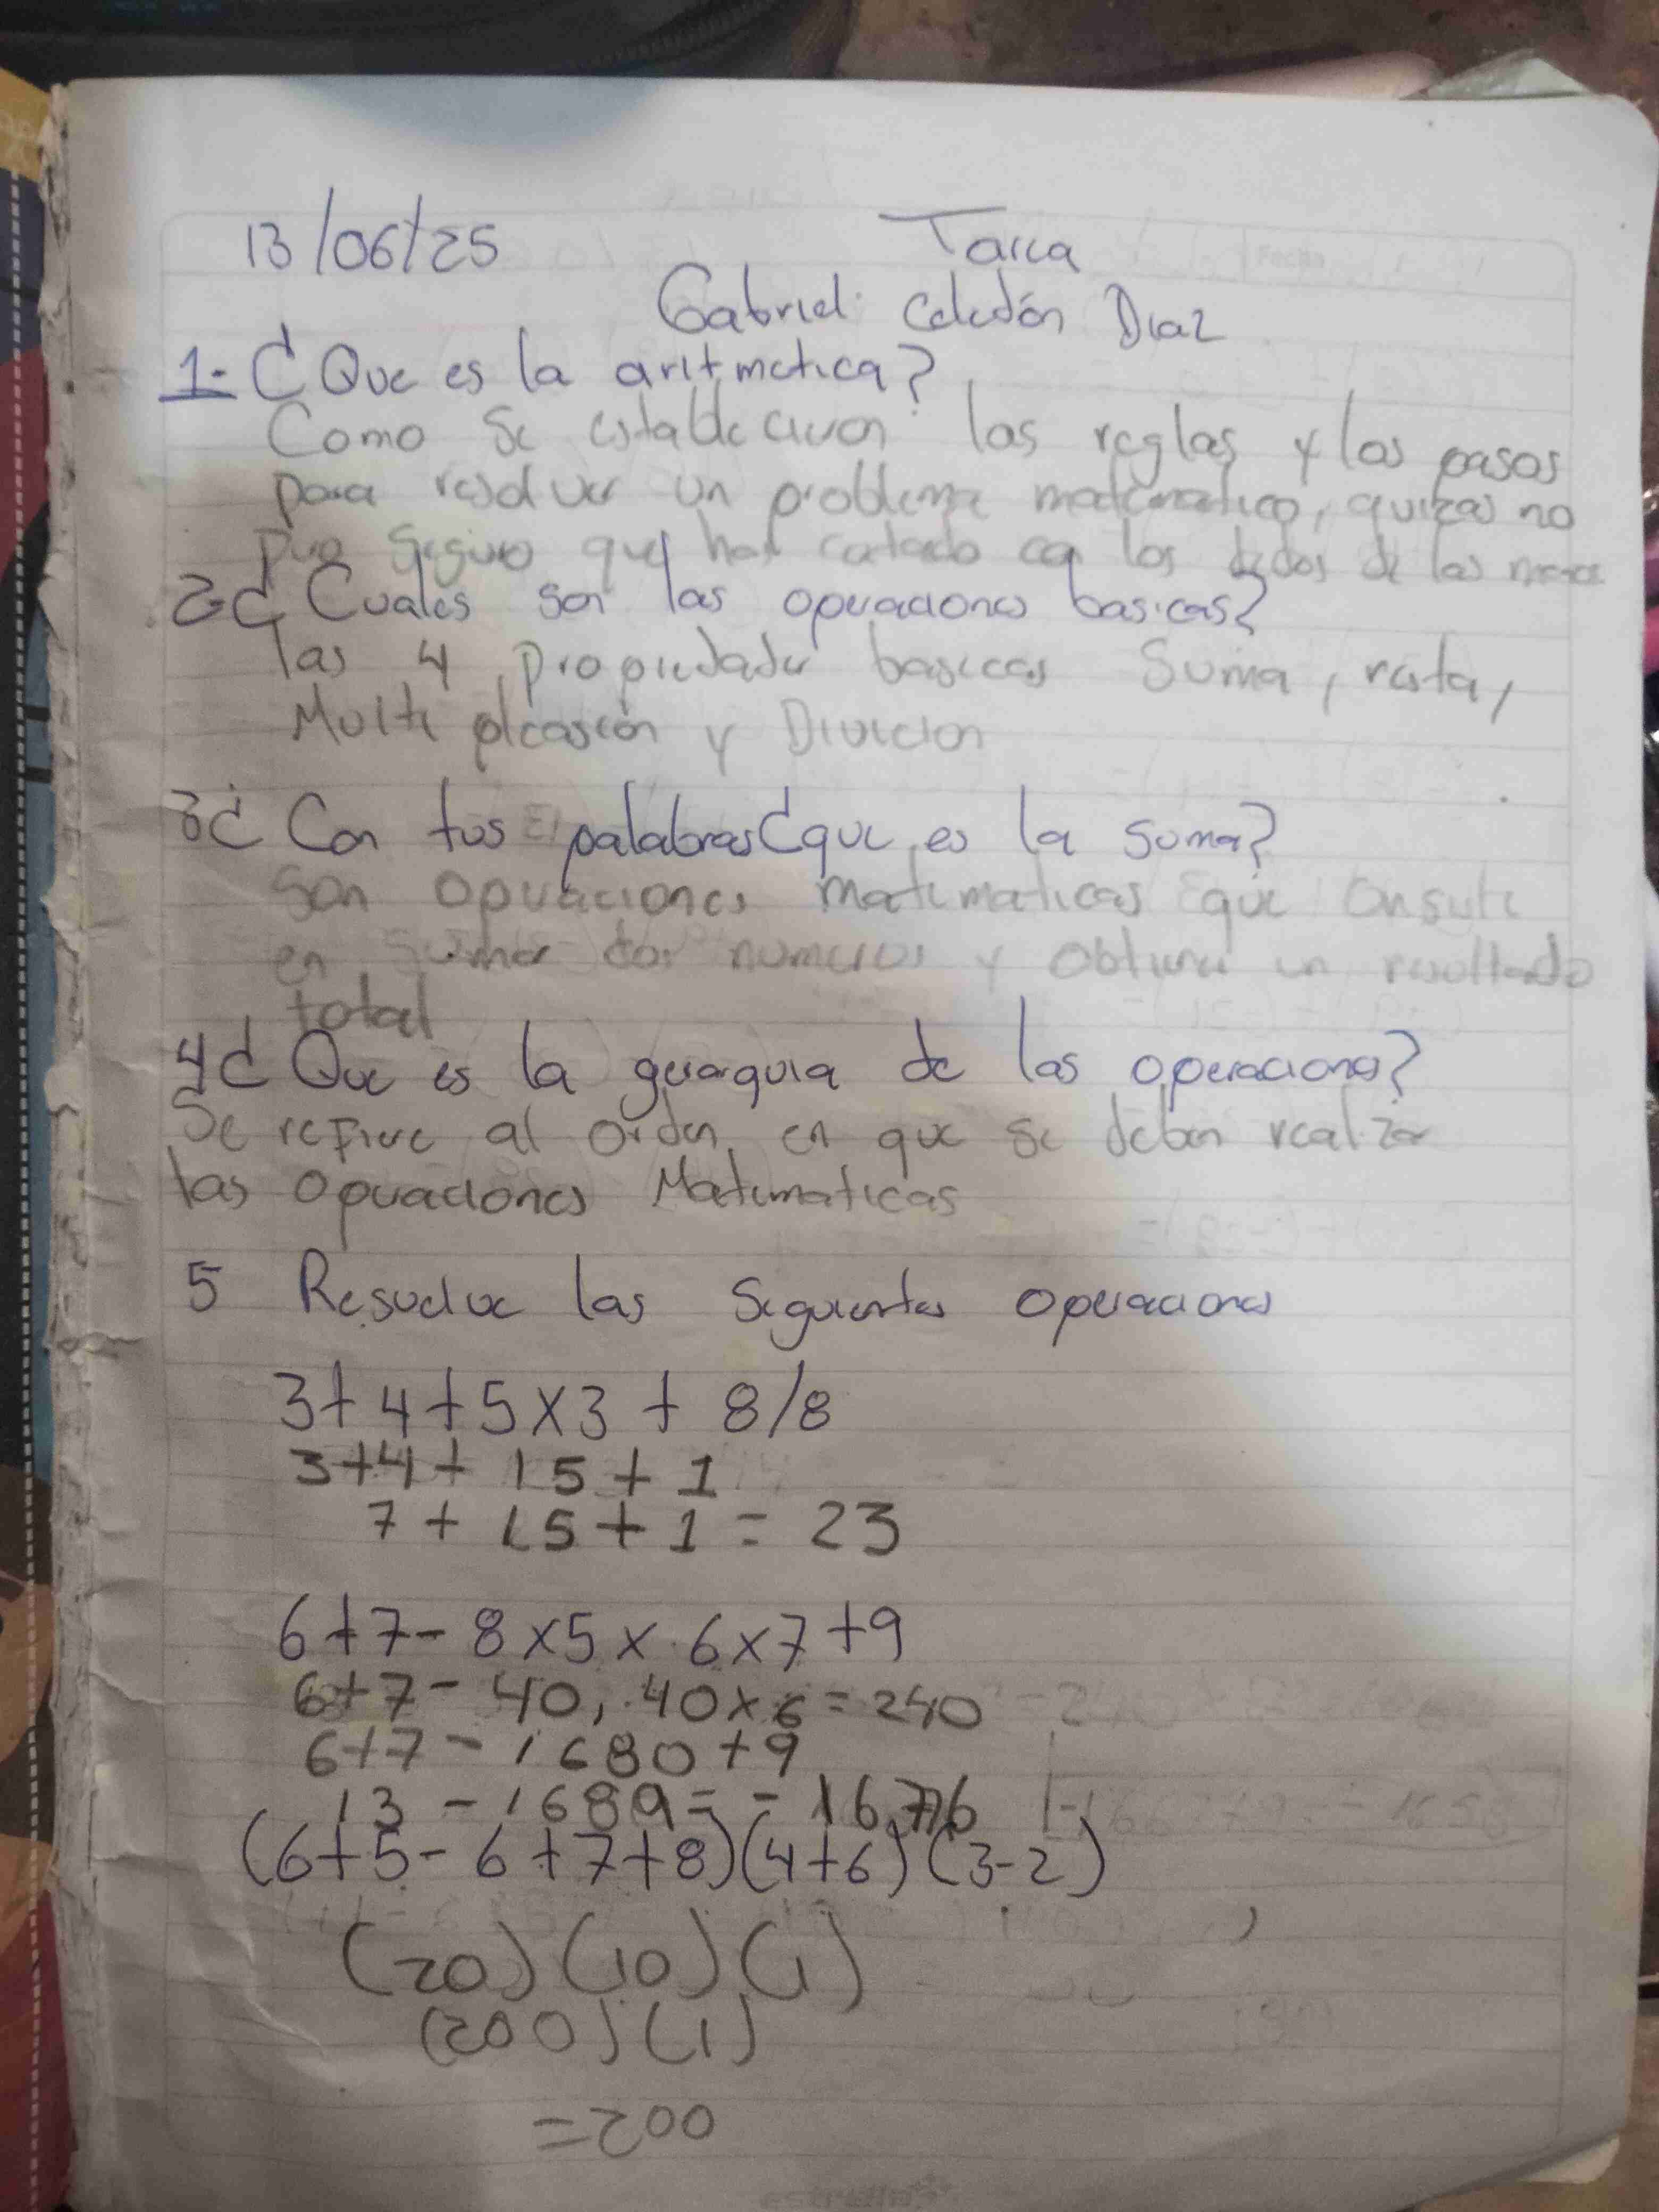 13/06/25 Tarea
Gabriel Celedón Diaz
1- ¿Que es la aritmetica?
Como se establecieron las reglas y los pasos
para resolver un problema matematico, quizas no
pero seguro que has contado con los dedos de las manos
2-¿Cuales son las operaciones basicas?
las 4 propiedades basicas suma, resta,
Multi plcasión y Divicion
3¿ Con tus palabras ¿que es la suma?
Son operaciones matematicas que consute
en sumar dos numeros y obtener un resultado
total
4¿ Que es la gerarquia de las operaciones?
Se refiere al orden en que se deben realizar
las operaciones Matematicas
5 Resuelve las siguientes operaciones
3+4+5x3+8/8
3+4+15+1
7+15+1=23
6+7-8x5x6x7+9
6+7-40, 40x6=240
6+7-1680+9
13-1689=-1676
(6+5-6+7+8)(4+6)(3-2)
(20)(10)(1)
(200)(1)
=200